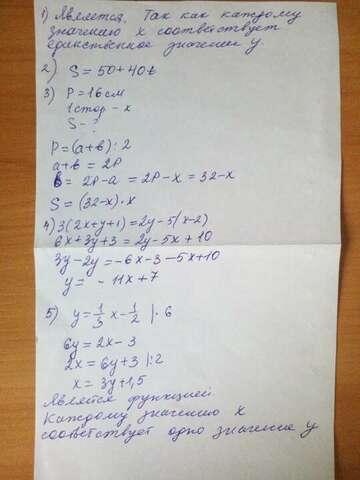 1) Является. Так как каждому
значению x соответствует
единственное значении y.
2) S = 50 + 40t
3) P = 16 см
1 стор - x
S - ?
P = (a+в) : 2
a+в = 2P
в = 2P - a = 2P - x = 32 - x
S = (32-x)·x
4) 3(2x+y+1) = 2y - 5(x-2)
6x + 3y + 3 = 2y - 5x + 10
3y - 2y = -6x - 3 - 5x + 10
y = - 11x + 7
5) y = 1/3 x - 1/2 |· 6
6y = 2x - 3
2x = 6y + 3 |:2
x = 3y + 1,5
Является функцией
Каждому значению x
соответствует одно значение y